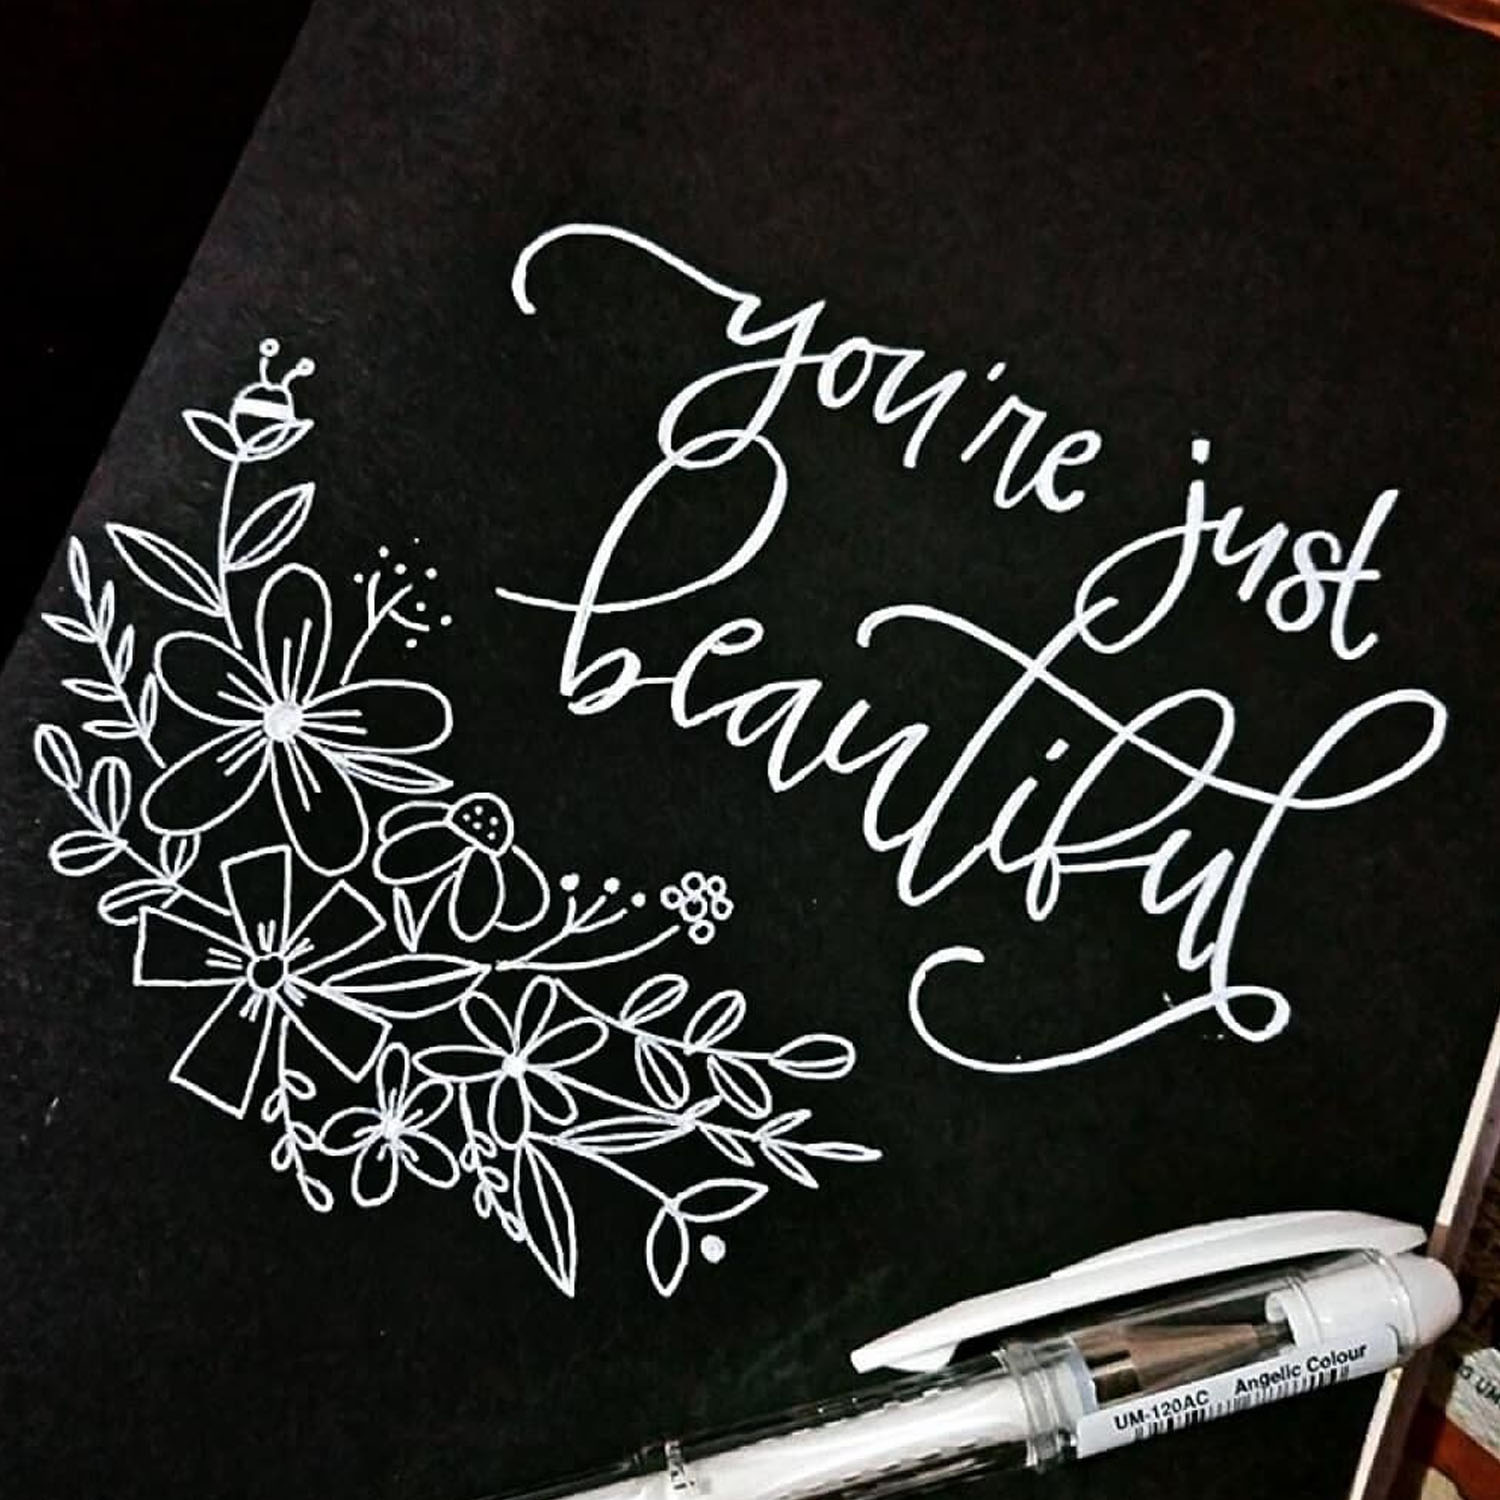 you're just
beautiful
UM-120AC Angelic Colour
UM